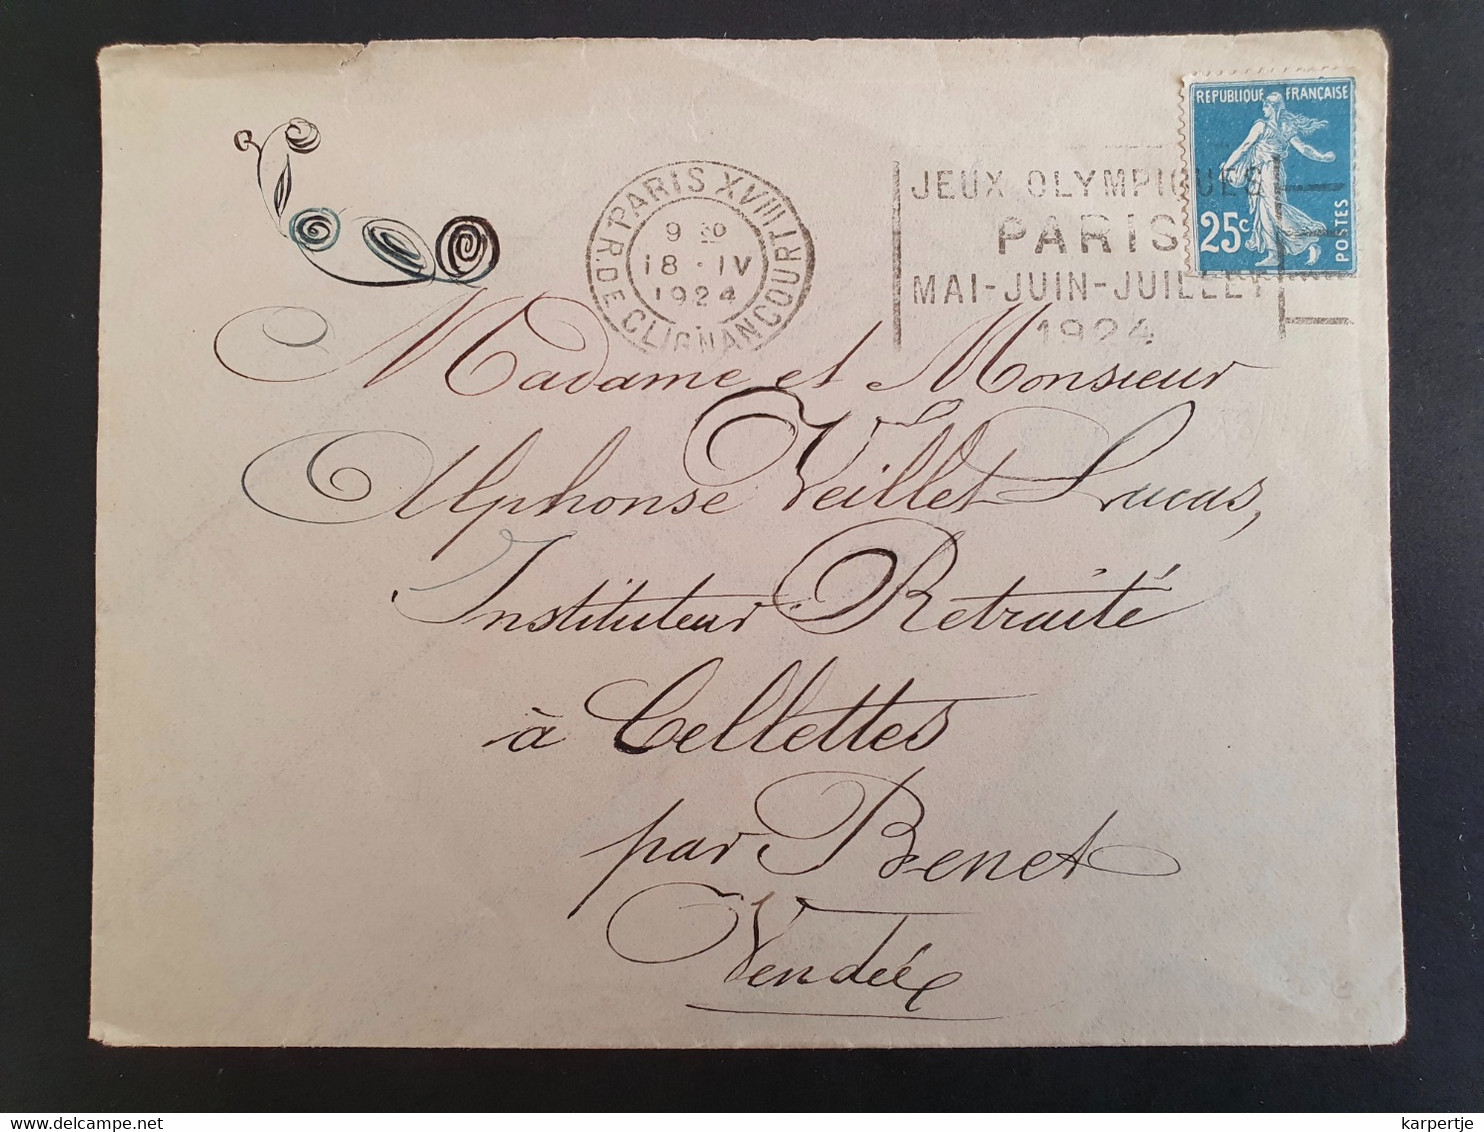 REPUBLIQUE FRANÇAISE
25c
POSTES
PARIS XVIII
R. DE CLIGNANCOURT
9 30
18 - IV
1924
JEUX OLYMPIQUES
PARIS
MAI-JUIN-JUILLET
1924
Madame et Monsieur
Alphonse Veillet Lucas,
Instituteur Retraité
à Cellettes
par Benet
Vendée
delcampe.net
karpertje